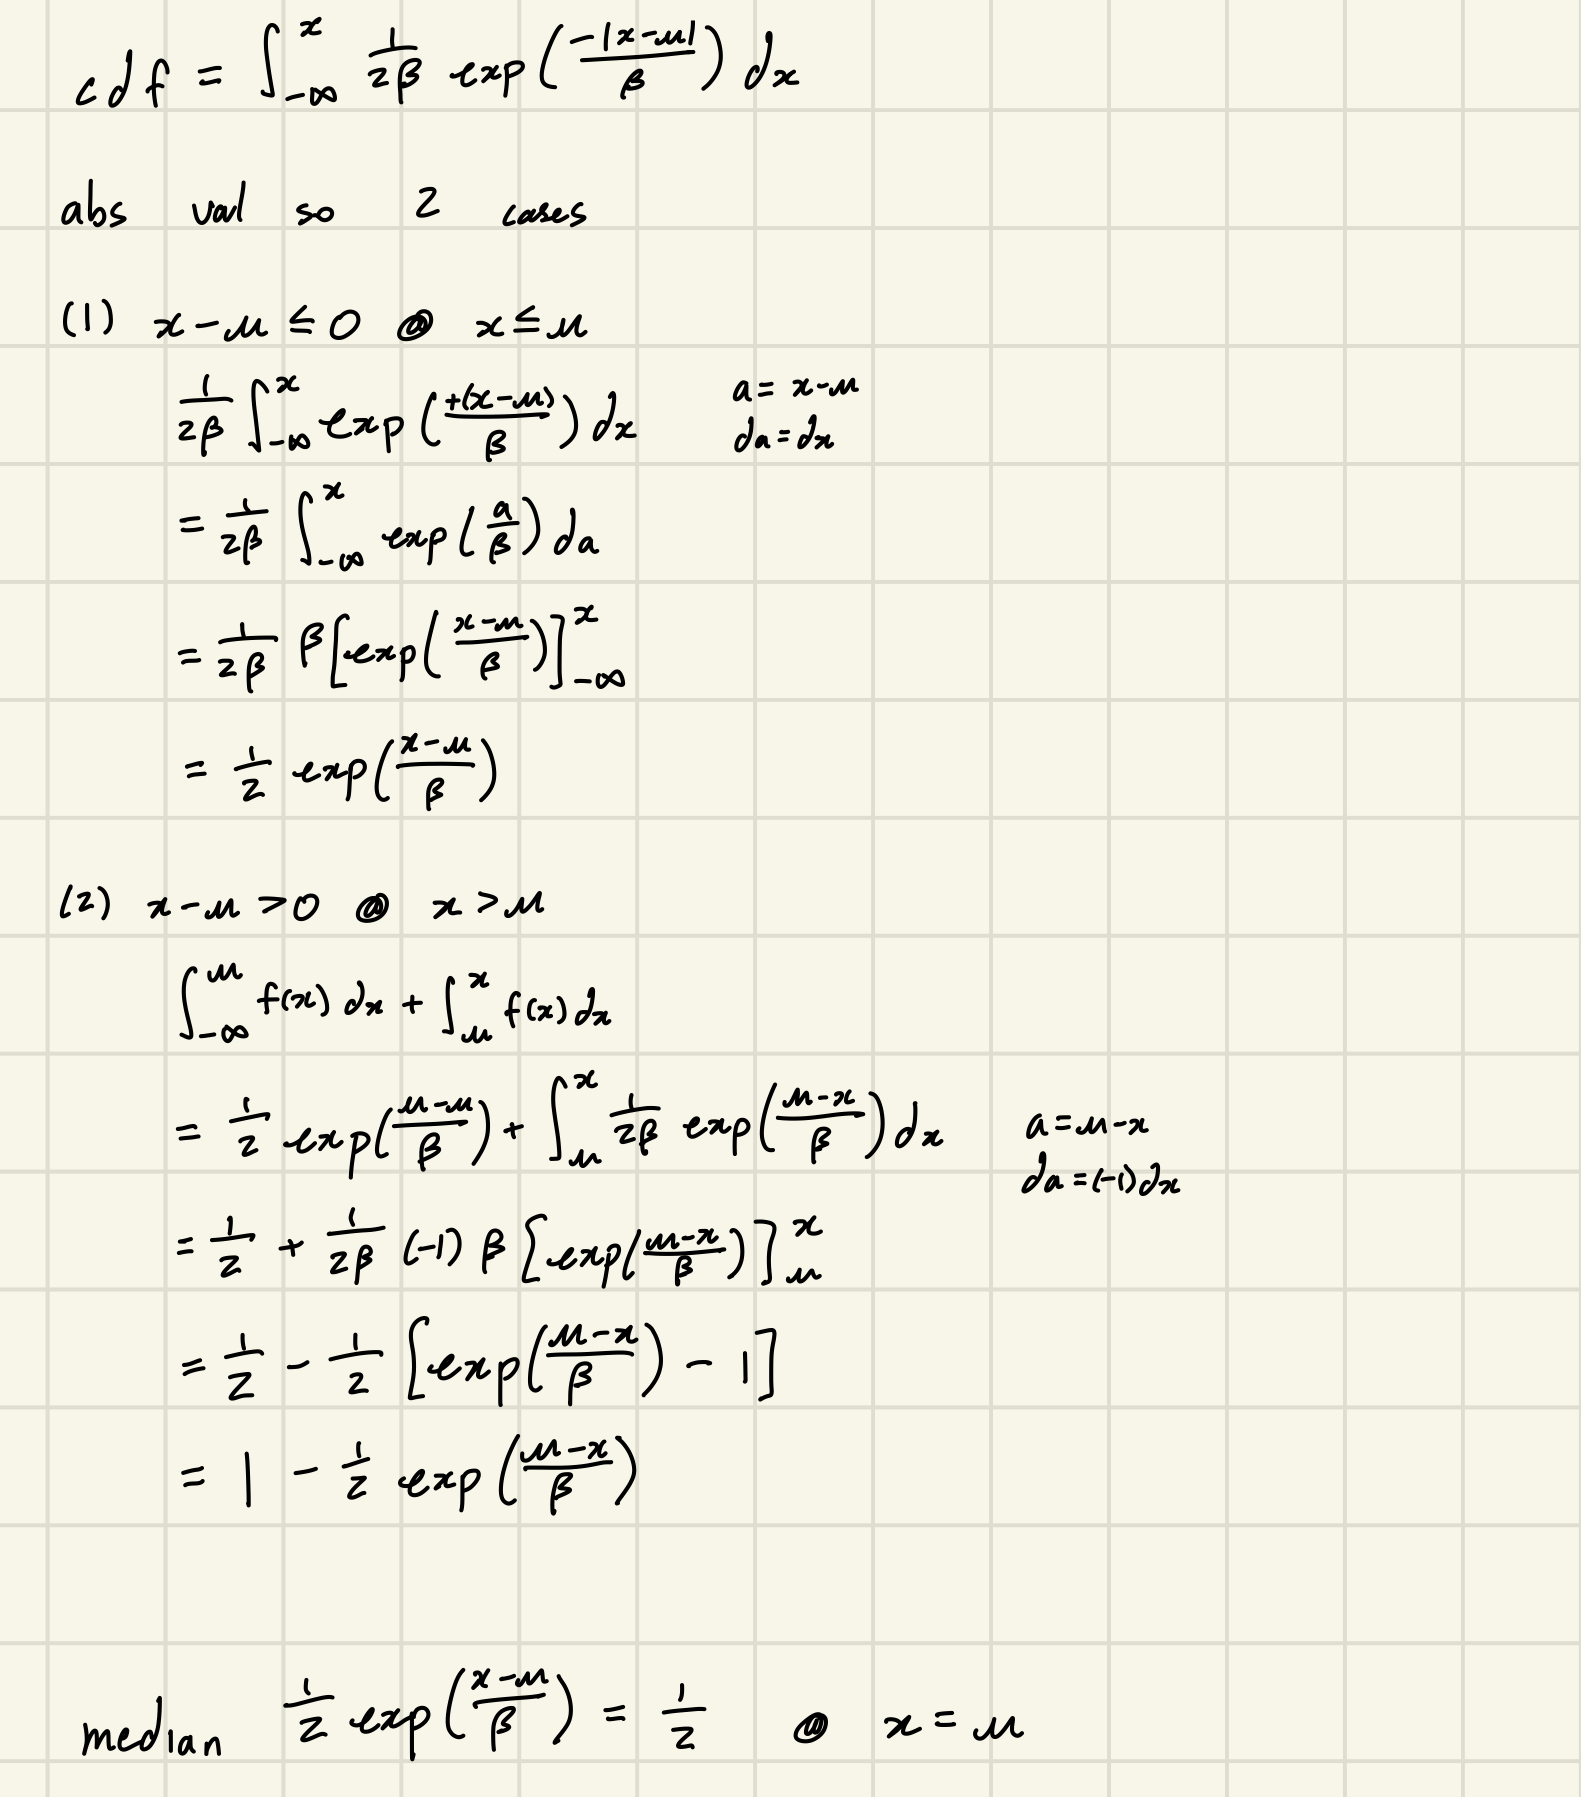 cdf = ∫_{-∞}^{x} \frac{1}{2β} exp(\frac{-|x-μ|}{β}) dx
abs val so 2 cases
(1) x-μ ≤ 0 @ x ≤ μ
\frac{1}{2β} ∫_{-∞}^{x} exp(\frac{+(x-μ)}{β}) dx a = x-μ
da = dx
= \frac{1}{2β} ∫_{-∞}^{x} exp(\frac{a}{β}) da
= \frac{1}{2β} β[exp(\frac{x-μ}{β})]_{-∞}^{x}
= \frac{1}{2} exp(\frac{x-μ}{β})
(2) x-μ > 0 @ x > μ
∫_{-∞}^{μ} f(x) dx + ∫_{μ}^{x} f(x) dx
= \frac{1}{2} exp(\frac{μ-μ}{β}) + ∫_{μ}^{x} \frac{1}{2β} exp(\frac{μ-x}{β}) dx a = μ-x
da = (-1)dx
= \frac{1}{2} + \frac{1}{2β} (-1) β [exp(\frac{μ-x}{β})]_{μ}^{x}
= \frac{1}{2} - \frac{1}{2} [exp(\frac{μ-x}{β}) - 1]
= 1 - \frac{1}{2} exp(\frac{μ-x}{β})
median \frac{1}{2} exp(\frac{x-μ}{β}) = \frac{1}{2} @ x = μ